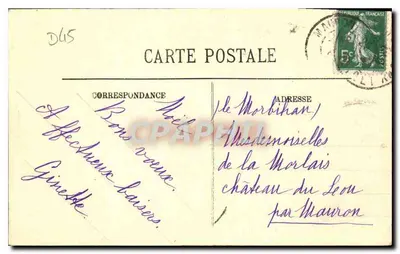 D45
CARTE POSTALE
CORRESPONDANCE
ADRESSE
Noël
Bons voeux.
Affectueux baisers.
Ginette
(le Morbihan)
Mesdemoiselles
de la Morlais
château du Leou
par Mauron
5c
CPAPHIL